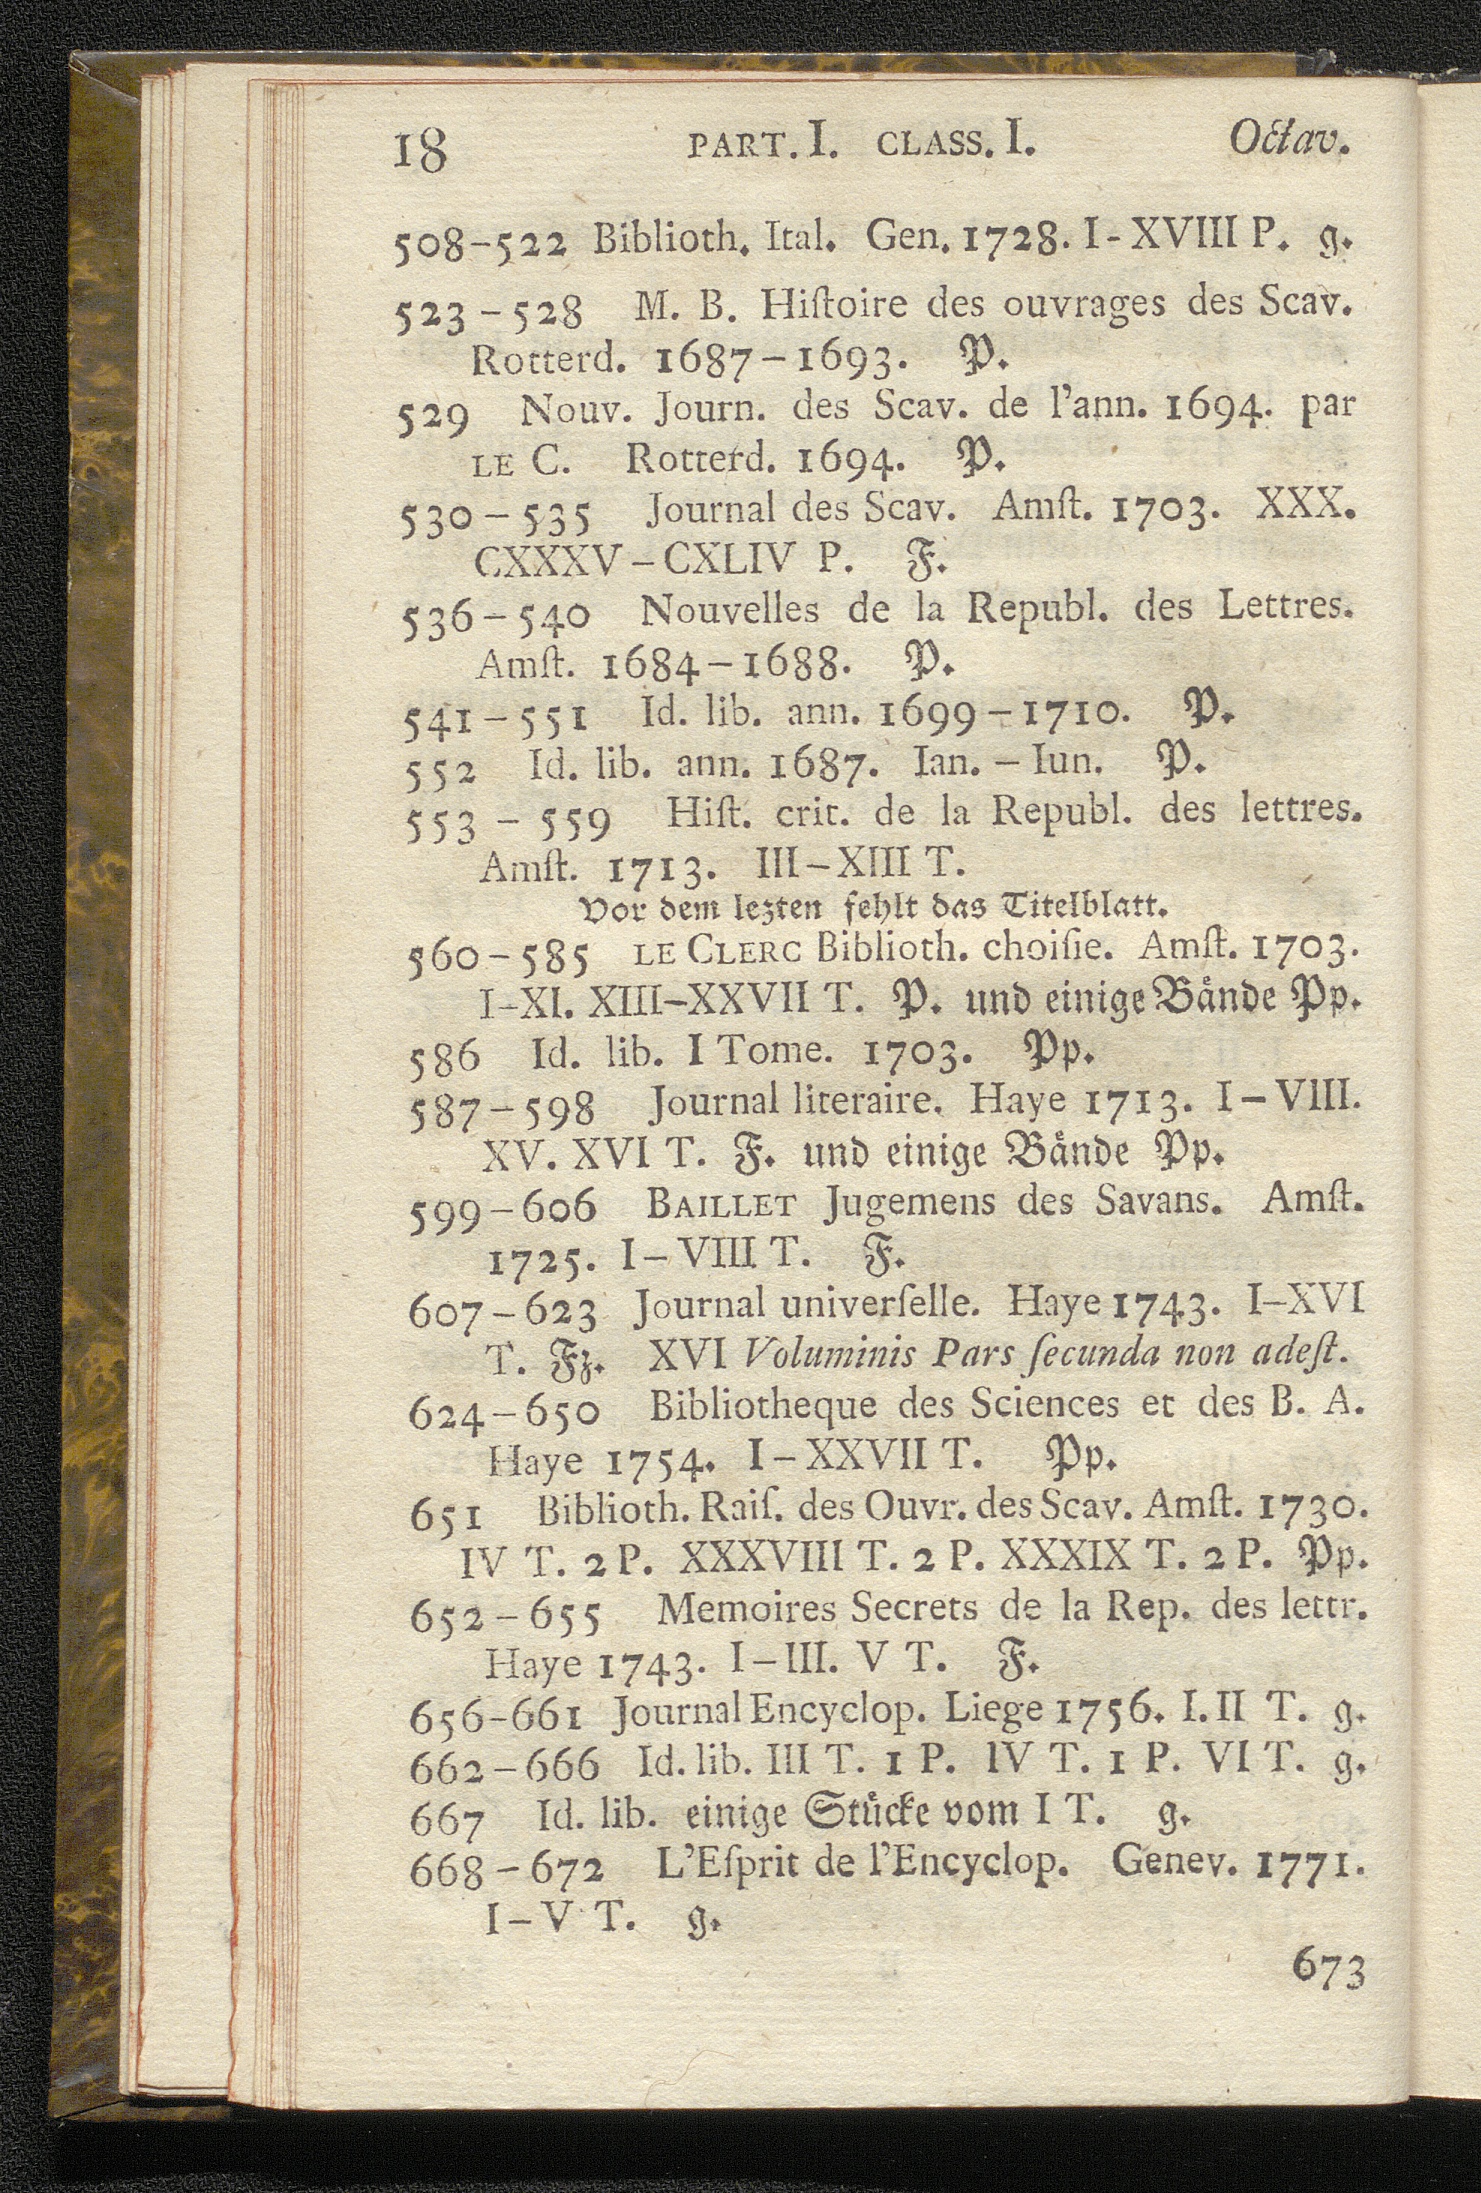 18 PART. I. CLASS. I. Octav.
508-522 Biblioth. Ital. Gen. 1728. I-XVIII P. g.
523-528 M. B. Hiſtoire des ouvrages des Scav.
Rotterd. 1687-1693. P.
529 Nouv. Journ. des Scav. de l'ann. 1694. par
LE C. Rotterd. 1694. P.
530-535 Journal des Scav. Amſt. 1703. XXX.
CXXXV-CXLIV P. F.
536-540 Nouvelles de la Republ. des Lettres.
Amſt. 1684-1688. P.
541-551 Id. lib. ann. 1699-1710. P.
552 Id. lib. ann. 1687. Ian. - Iun. P.
553 - 559 Hiſt. crit. de la Republ. des lettres.
Amſt. 1713. III-XIII T.
Vor dem lezten fehlt das Titelblatt.
560-585 LE CLERC Biblioth. choiſie. Amſt. 1703.
I-XI. XIII-XXVII T. P. und einige Bände Pp.
586 Id. lib. I Tome. 1703. Pp.
587-598 Journal literaire. Haye 1713. I-VIII.
XV. XVI T. F. und einige Bände Pp.
599-606 BAILLET Jugemens des Savans. Amſt.
1725. I-VIII T. F.
607-623 Journal univerſelle. Haye 1743. I-XVI
T. Fz. XVI Voluminis Pars ſecunda non adeſt.
624-650 Bibliotheque des Sciences et des B. A.
Haye 1754. I-XXVII T. Pp.
651 Biblioth. Raiſ. des Ouvr. des Scav. Amſt. 1730.
IV T. 2 P. XXXVIII T. 2 P. XXXIX T. 2 P. Pp.
652-655 Memoires Secrets de la Rep. des lettr.
Haye 1743. I-III. V T. F.
656-661 Journal Encyclop. Liege 1756. I. II T. g.
662-666 Id. lib. III T. 1 P. IV T. 1 P. VI T. g.
667 Id. lib. einige Stücke vom I T. g.
668-672 L'Eſprit de l'Encyclop. Genev. 1771.
I-V T. g.
673